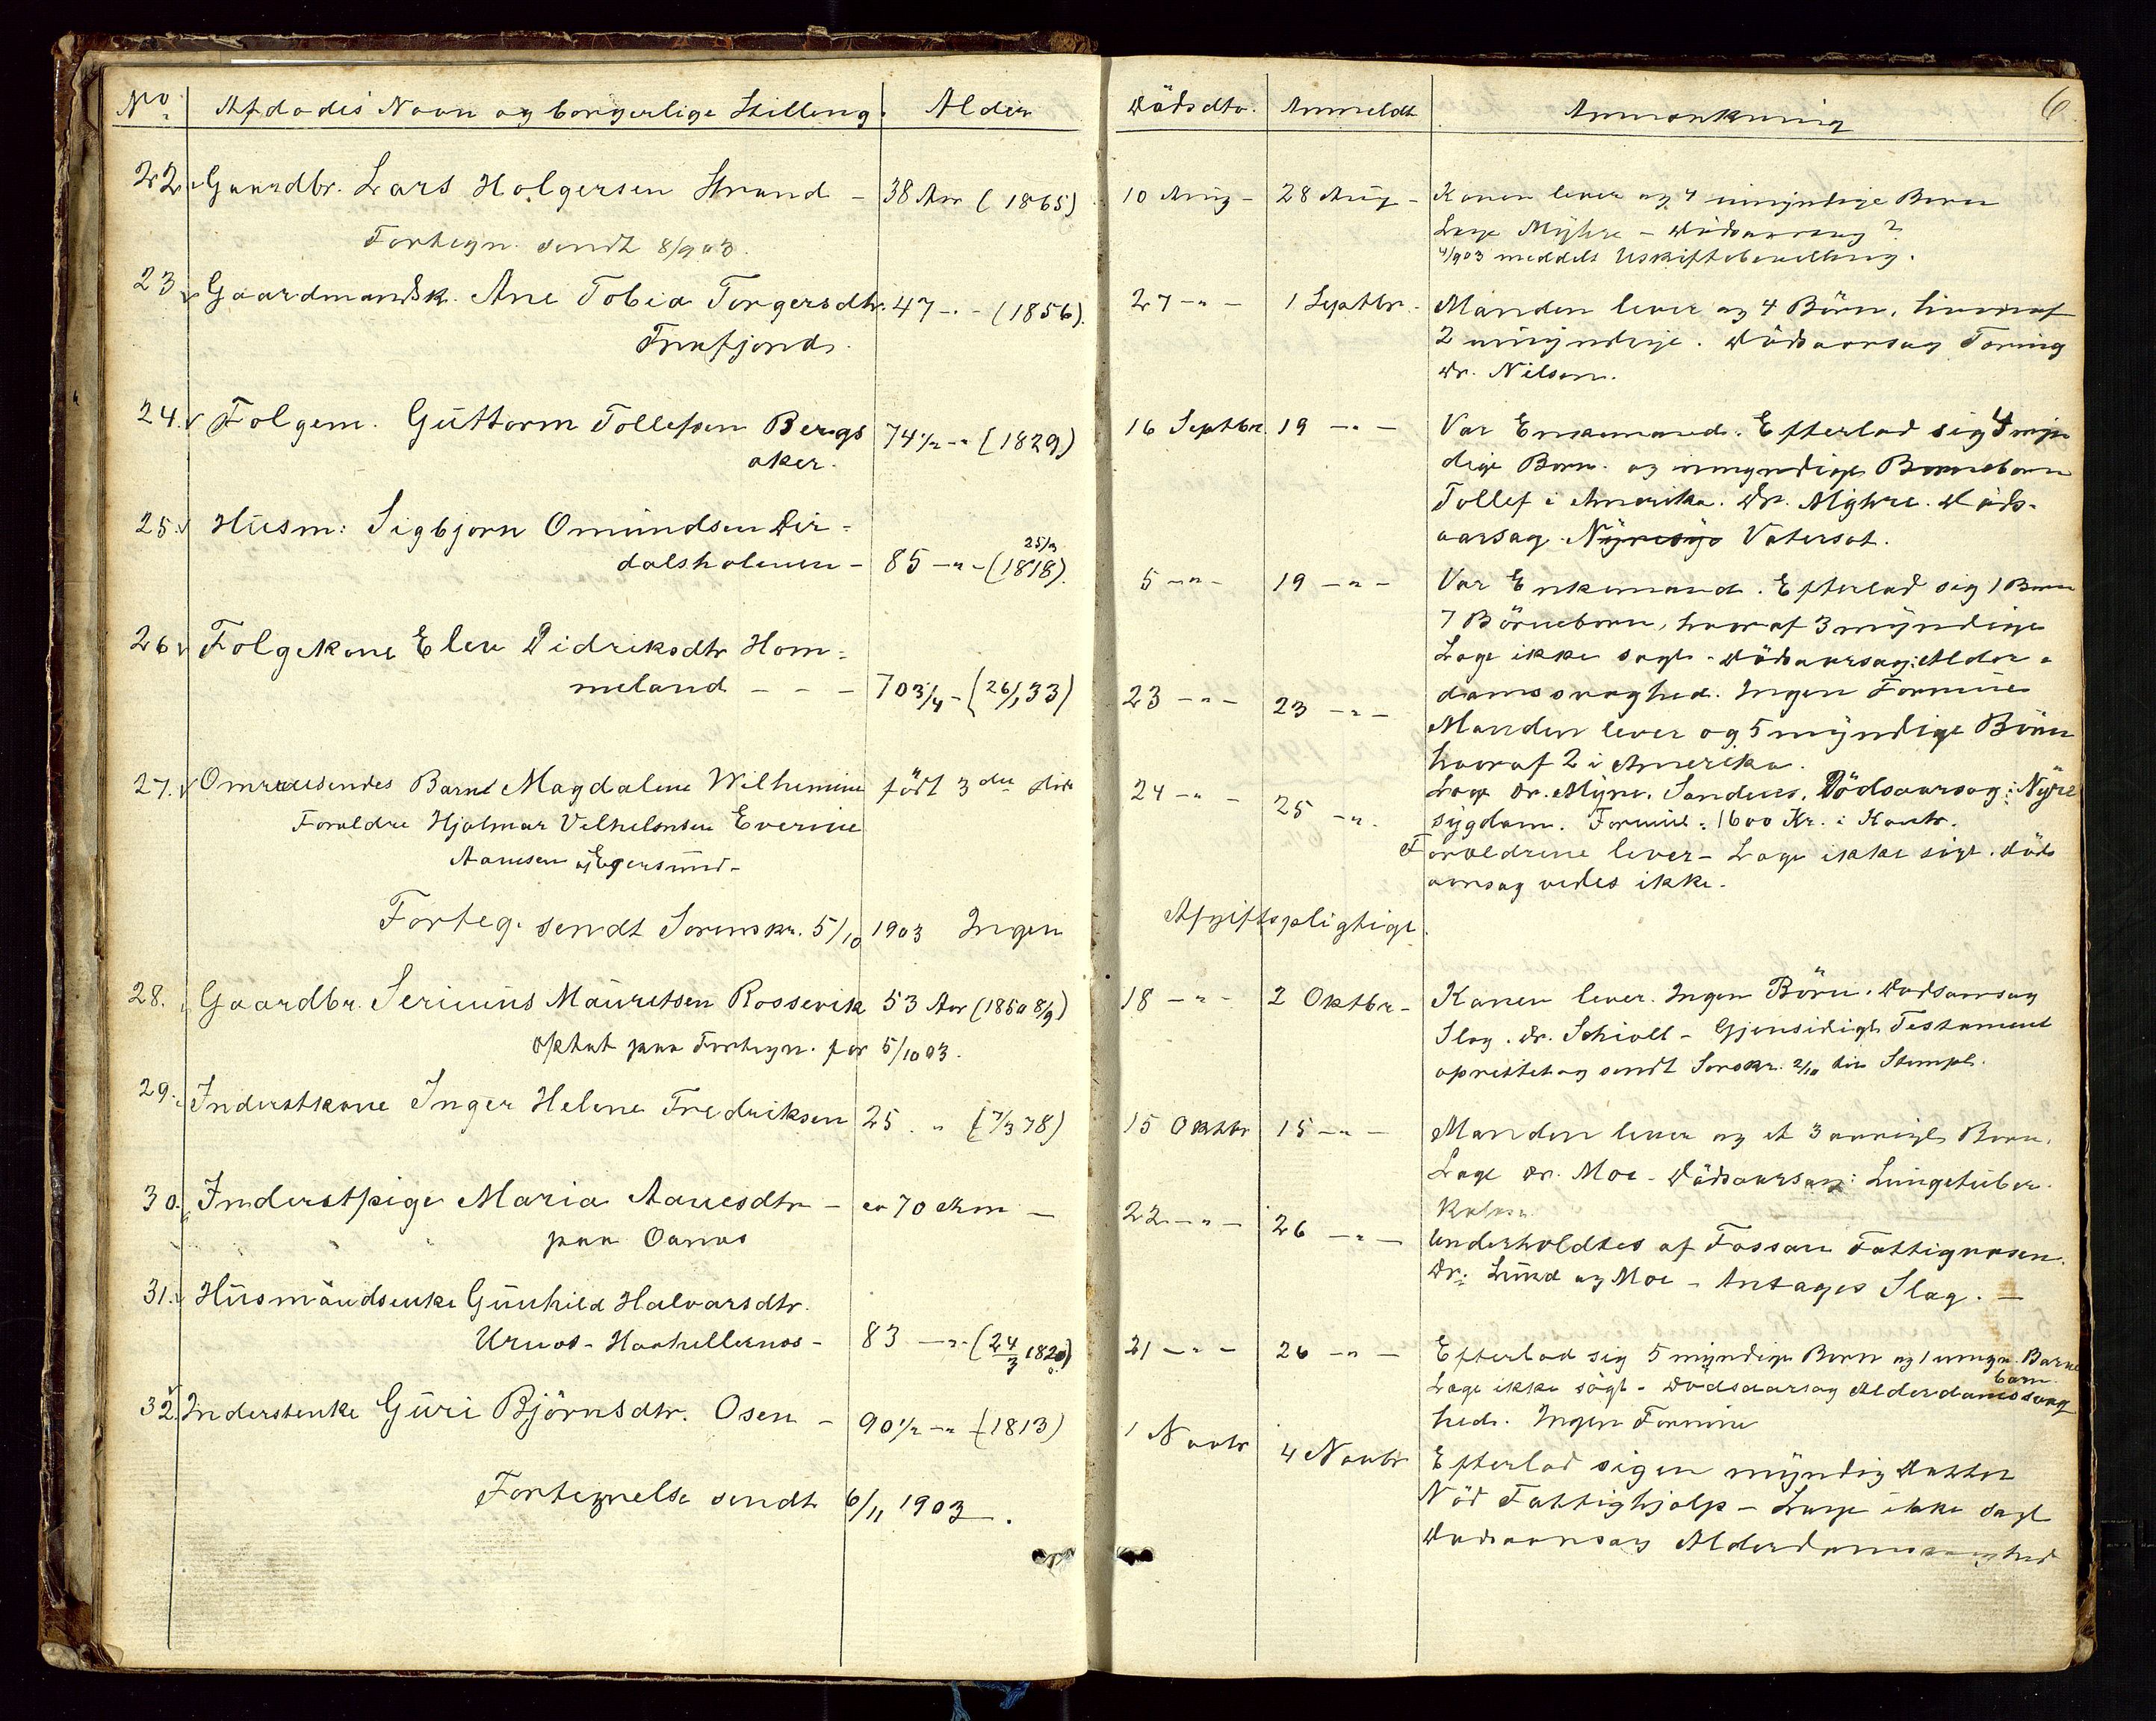 No. Afdødes Navn og borgerlige Stilling. Alder
22. Gaardbr. Lars Holgersen Strand - 38 Aar (1865)
Fortegn. sendt 8/9 03.
23. Gaardmandsk. Ane Tobia Torgersdtr. 47 -"- (1856).
Frafjord.
24. Folgem. Guttorm Tollefsen Bergs 74 1/2 -"- (1829)
aker.
25. Husm: Sigbjørn Omundsen Dir-
dalsholmen - 85 -"- (25/3 1818).
26. Folgekone Elen Didriksdtr Hom-
meland - - - 70 3/4 - (26/1 33)
27. Omreisendes Barn Magdalene Wilhemine født 3die
Forældre Hjalmar Vilhelmsen Everine
Aanesen af Egersund -
Forteg. sendt Sorenskr. 5/10 1903 Ingen
28. Gaardbr. Serinius Mauretsen Rossevik 53 Aar (1850 8/9)
optat paa Fortegn. for 5/10 03.
29. Inderstkone Inger Helene Fredriksen 25 " (7/3 78)
30. Inderstpige Maria Aanesdtr - ca 70 Aar -
paa Oanes
31. Husmandsenke Gunhild Halvarsdtr.
Urnes - Haahellernes - 83 -"- (24/3 1820)
32. Inderstenke Guri Björnsdtr. Osen - 90 1/2 -"- (1813)
Fortegnelse sendt 6/11 1903.
Dødsdto. Anmeldt Anmærkning 6.
10 Aug - 28 Aug - Konen lever og 4 umyndige Børn
Læge Myhre - Dødsaarsag ?
4/9 03 meddelt Uskiftebevilling.
27 -"- 1 Septbr. Manden lever og 4 Börn, hvoraf
2 umyndige. Dødsaarsag Tæring
Dr. Nilsen.
16 Septbr. 19 -"- Var Enkemand. Efterlod sig 4 myn
dige Børn og umyndige Børnebørn
Tollef i Amerika. Dr. Myhre. Døds-
aarsag Nyresyg Vatersot.
5 -"- 19 -"- Var Enkemand. Efterlod sig 1 Barn
7 Börnebørn, hvoraf 3 myndige
Læge ikke søgt. Dödsaarsag: Alder-
domssvaghed. Ingen Formue
23 -"- 23 -"- Manden lever og 5 myndige Börn
hvoraf 2 i Amerika.
Læge Dr. Myhre, Sandnes, Dödsaarsag: Nyre
sygdom. Formue: 1600 Kr. i Kontr.
24 -"- 25 -"- Forældrene lever - Læge ikke søgt. Døds
aarsag vides ikke.
Afgiftspligtige.
18 -"- 2 Oktbr - Konen lever. Ingen Börn. Dødsaarsag
Slag. Dr. Schiøll - Gjensidigt Testament
oprettet og sendt Sorskr. 2/10 til Stempl.
15 Oktbr 15 -"- Manden lever og et 3 aarigt Barn.
Læge Dr. Moe - Dødsaarsag: Lungetuber-
kulose
22 -"- 26 -"- Underholdtes af Fossan Fattigvæsen.
Dr: Lund og Moe - Antages Slag. -
21 -"- 26 -"- Efterlod sig 5 myndige Børn og 1 umyn. Barne
barn.
Læge ikke søgt - Dødsaarsag Alderdomssvag
hed. Ingen Formue
1 Novbr 4 Novbr Efterlod sig en myndig Datter
Nød Fattighjælp - Læge ikke søgt
Dødsaarsag Alderdomssvaghed